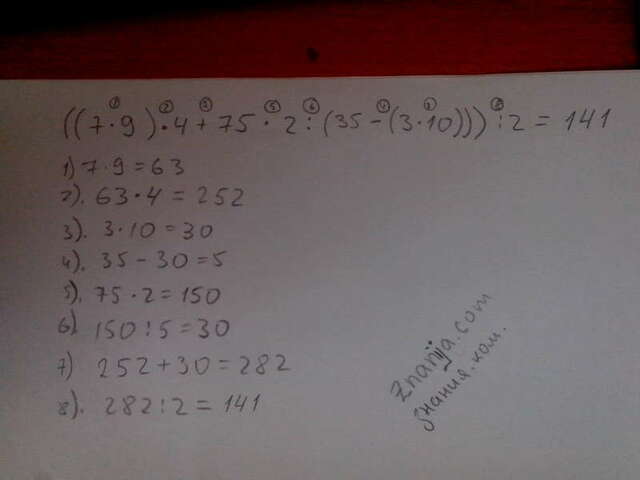 ① ② ⑦ ⑤ ⑥ ④ ③ ⑧
((7·9)·4+75·2:(35-(3·10))):2=141
1) 7·9=63
2). 63·4=252
3). 3·10=30
4). 35-30=5
5). 75·2=150
6) 150:5=30
7) 252+30=282
8). 282:2=141
Znanija.com
знания.ком.